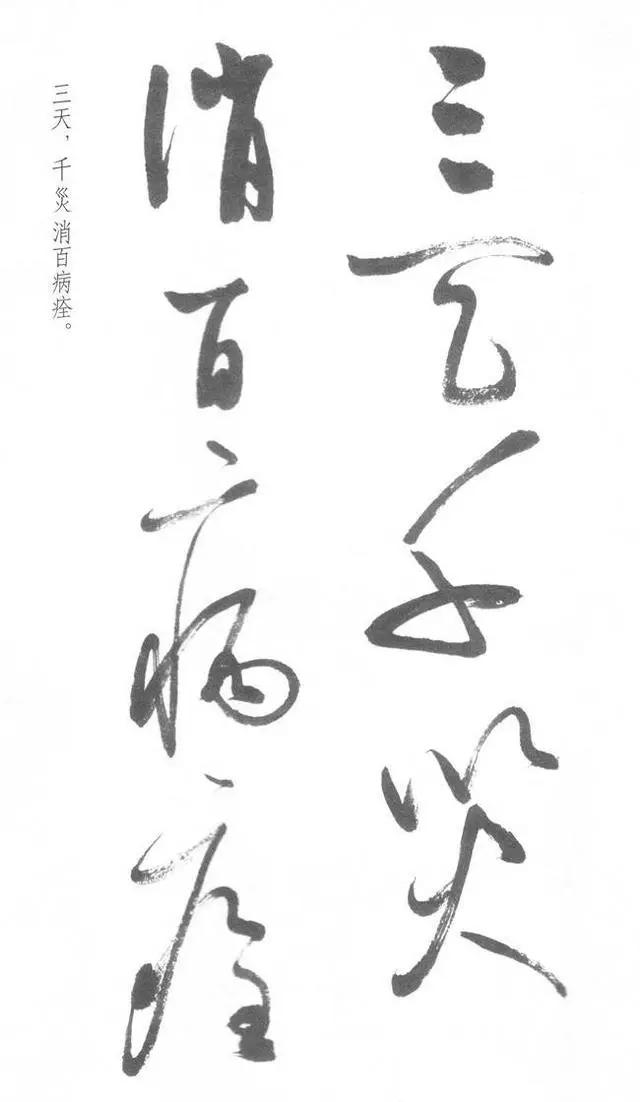 三天千災
消百病痊
三天，千災消百病痊。